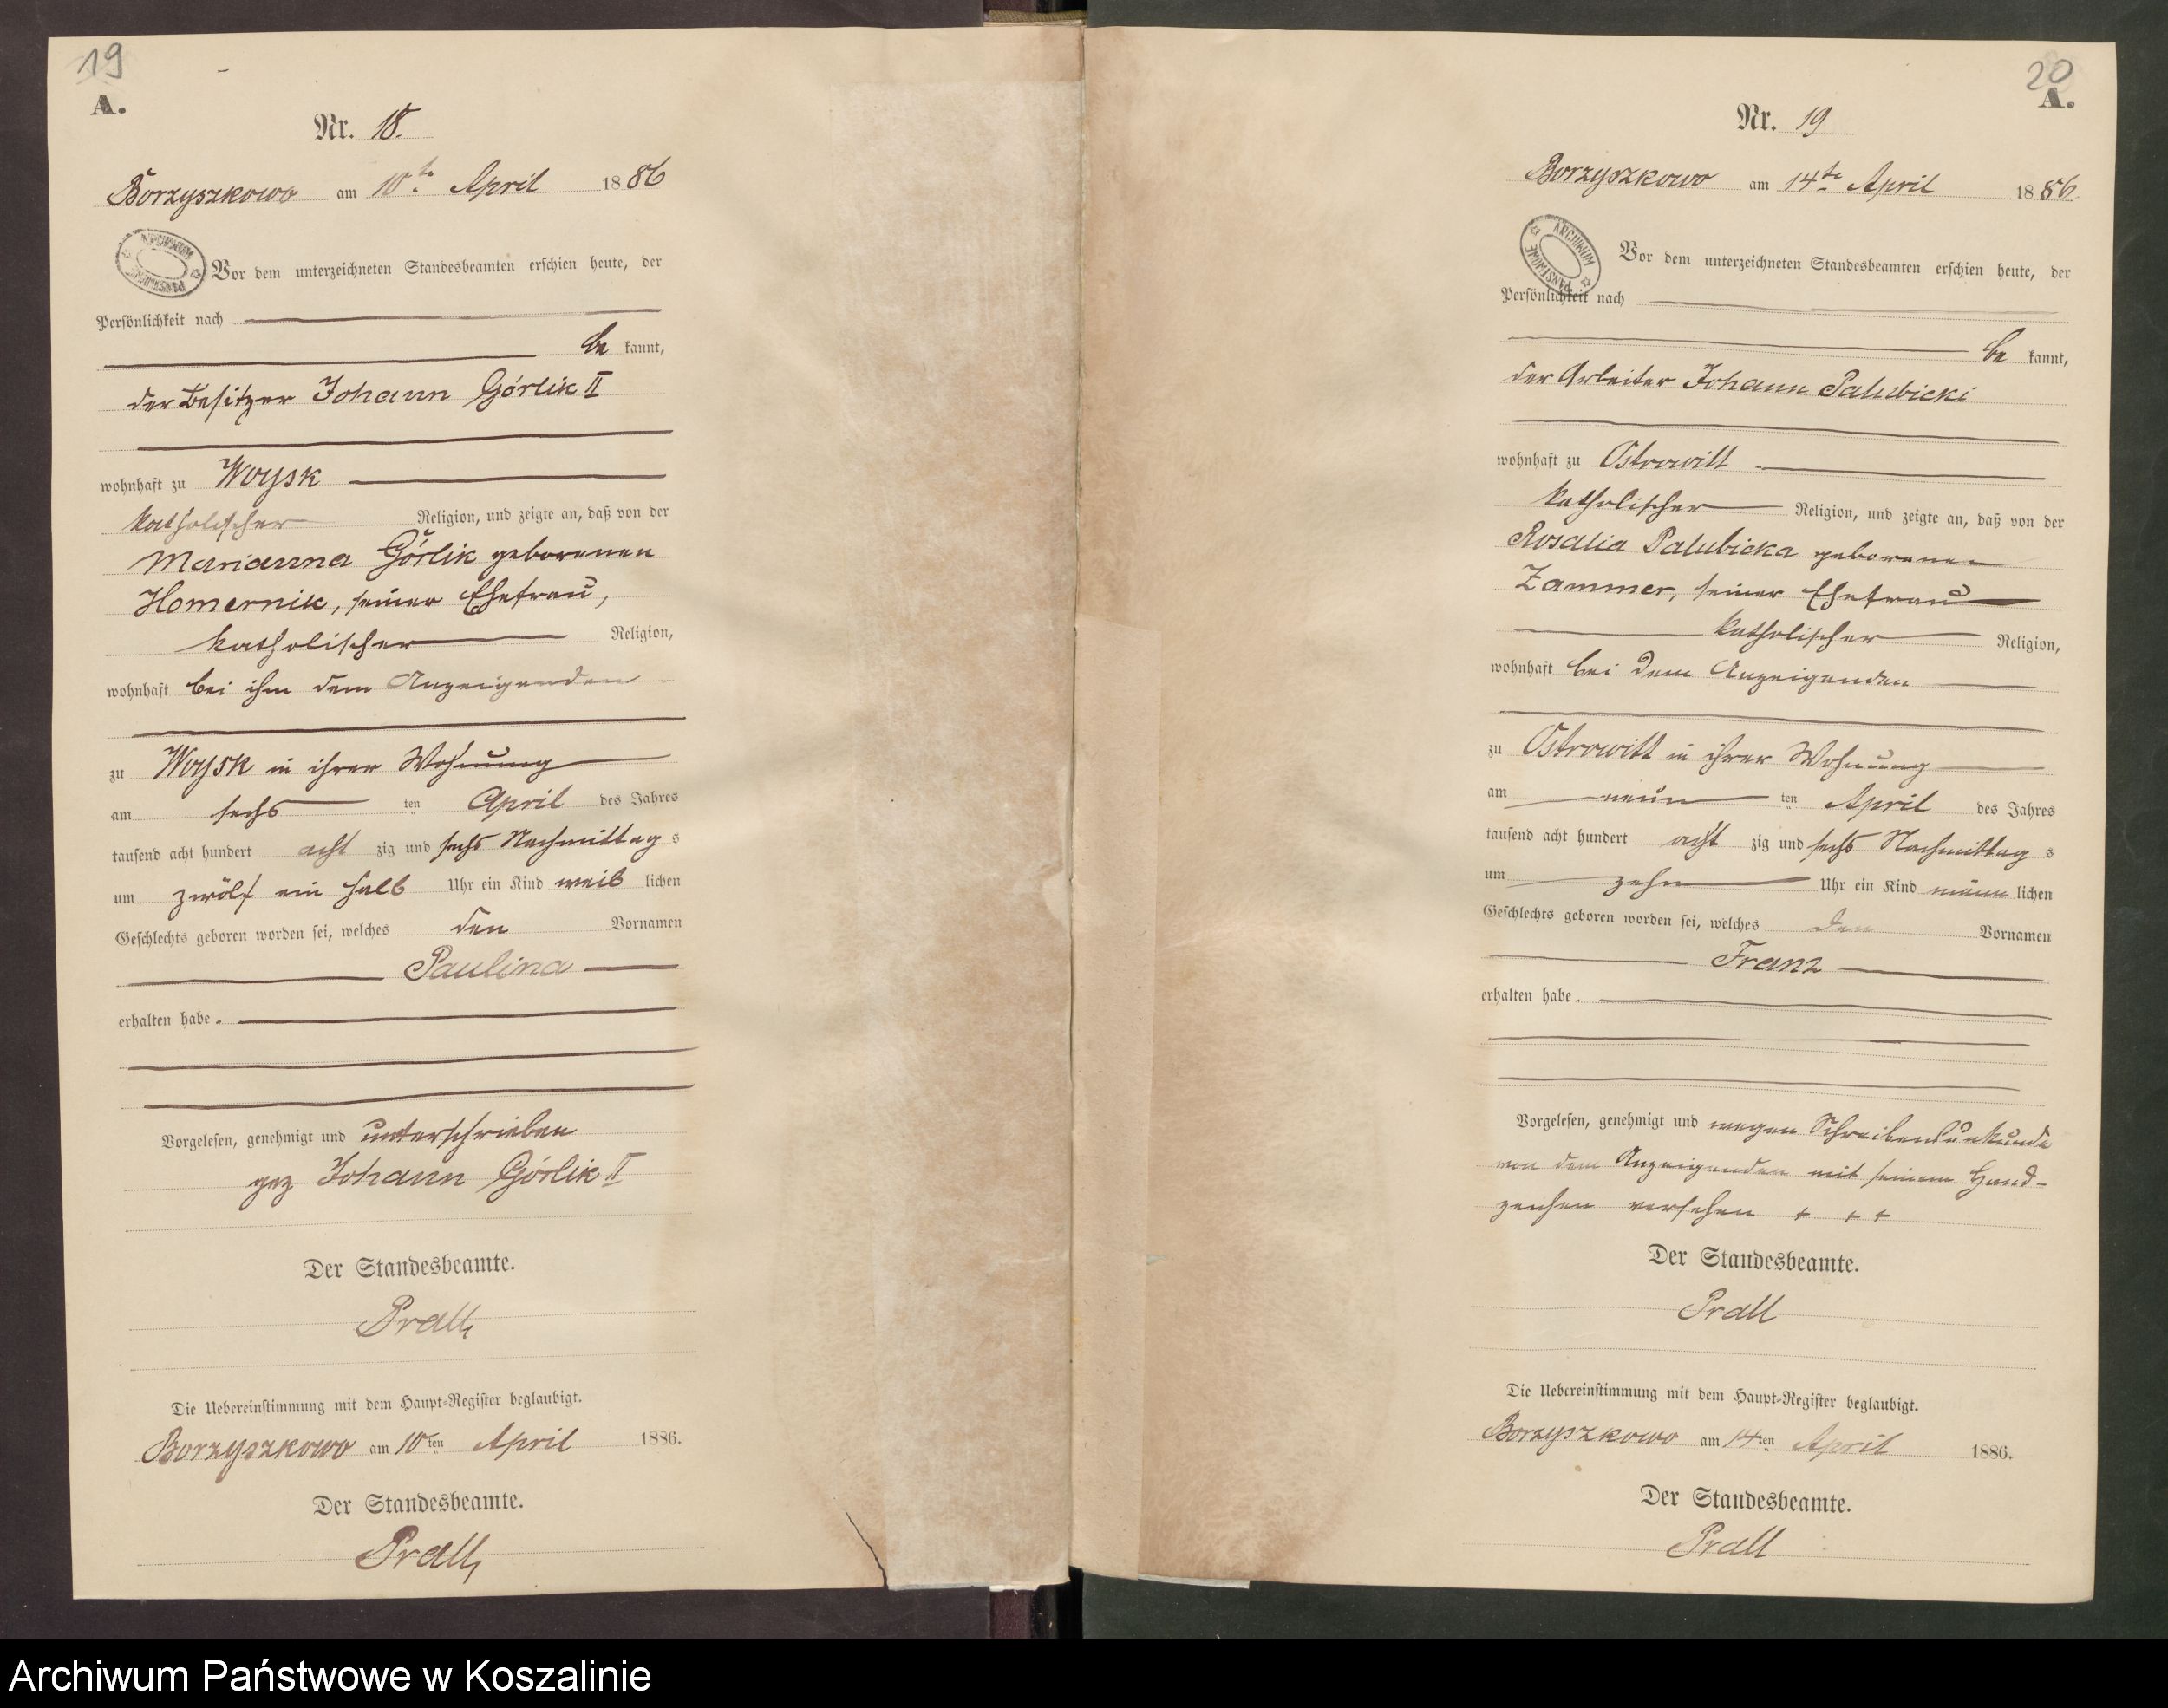 19
A.
Nr. 18.
Borzyszkowo am 10te April 1886
ARCHIWUM PAŃSTWOWE
Vor dem unterzeichneten Standesbeamten erschien heute, der
Persönlichkeit nach
be kannt,
der Besitzer Johann Górlik II
wohnhaft zu Woysk
katholischer Religion, und zeigte an, daß von der
Marianna Górlik geborenen
Homernik, seiner Ehefrau,
katholischer Religion,
wohnhaft bei ihm dem Anzeigenden
zu Woysk in ihrer Wohnung
am sechs ten April des Jahres
tausend acht hundert acht zig und sechs Nachmittag s
um zwölf ein halb Uhr ein Kind weib lichen
Geschlechts geboren worden sei, welches den Vornamen
Paulina
erhalten habe.
Vorgelesen, genehmigt und unterschrieben
gez Johann Górlik II
Der Standesbeamte.
Prall
Die Uebereinstimmung mit dem Haupt-Register beglaubigt.
Borzyszkowo am 10ten April 1886.
Der Standesbeamte.
Prall
20
A.
Nr. 19
Borzyszkowo am 14te April 1886
ARCHIWUM PAŃSTWOWE
Vor dem unterzeichneten Standesbeamten erschien heute, der
Persönlichkeit nach
be kannt,
der Arbeiter Johann Palubicki
wohnhaft zu Ostrowitt
katholischer Religion, und zeigte an, daß von der
Rosalia Palubicka geborenen
Zammer, seiner Ehefrau
katholischer Religion,
wohnhaft bei dem Anzeigenden
zu Ostrowitt in ihrer Wohnung
am neun ten April des Jahres
tausend acht hundert acht zig und sechs Nachmittag s
um zehn Uhr ein Kind männ lichen
Geschlechts geboren worden sei, welches den Vornamen
Franz
erhalten habe.
Vorgelesen, genehmigt und wegen Schreibensunkunde
von dem Anzeigenden mit seinem Hand-
zeichen versehen + + +
Der Standesbeamte.
Prall
Die Uebereinstimmung mit dem Haupt-Register beglaubigt.
Borzyszkowo am 14ten April 1886.
Der Standesbeamte.
Prall
Archiwum Państwowe w Koszalinie